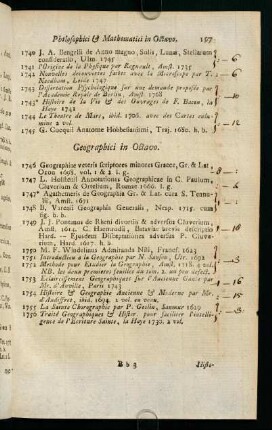 Philosophici & Mathematici in Octavo. 197
1740 J. A. Bengelii de Anno magno, Solis, Lunae, Stellarum
consideratio, Ulm. 1745
1741 l'Origine de la Physique par Regnault, Amst. 1735
1742 Nouvelles decouvertes faites avec le Microscope par T.
Needham, Leide 1747
1743 Dissertation Physiologique sur une demande proposée par
l'Academie Royale de Berlin, Amst. 1768
1743* Histoire de la Vie & des Ouvrages de F. Bacon, la
Haye 1742
1744 Le Theatre de Mars, ibid. 1706. avec des Cartes
1745 G. Coequii Anatome Hobbesianismi, Traj. 1680. h. b.
Geographici in Octavo.
1746 Geographiae veteris scriptores minores Graece, Gr. & Lat
Oxon 1698. vol. 1 & 2 l. g.
1747 L. Holstenii Annotationes Geographicae in C. Paulum,
Cluverium & Ortelium, Romae 1666. l. g.
1747* Agathemeris de Geographia Gr. & Lat. cura S. Tennu-
lii, Amst. 1671
1748 B. Varenii Geographia Generalis, Neap. 1715. cum
fig. h. b.
1749 J. J. Pontanus de Rheni divortiis & adversus Cluverium,
Amst. 1614.
Hard. 1617. h. b.
1750 M. P. Windelinus Admiranda Nili, Francof. 1623
1751 Introduction a la Geographie par N. Sanson, Utr. 1692
1752 Methode pour Etudier la Geographie, Amst. 1718. 4 vol
NB. les deux premieres feuilles au tom. 2. un peu defect.
1753 Eclaircissemens Geographiques sur l'Ancienne Gaule par
Mr. d'Anville, Paris 1743
1754 Histoire & Geographie Ancienne & Moderne par Mr.
d'Audiffret, ibid. 1694. 2 vol. en veau.
1755 La Sainte Chorographie par P. Saumur 1629
1756 Traité Geographiques & Histor pour faciliter l'intelli-
gence de l'Ecriture Sainte, la Haye 1730. 2 vol.
B b 3 Histo-